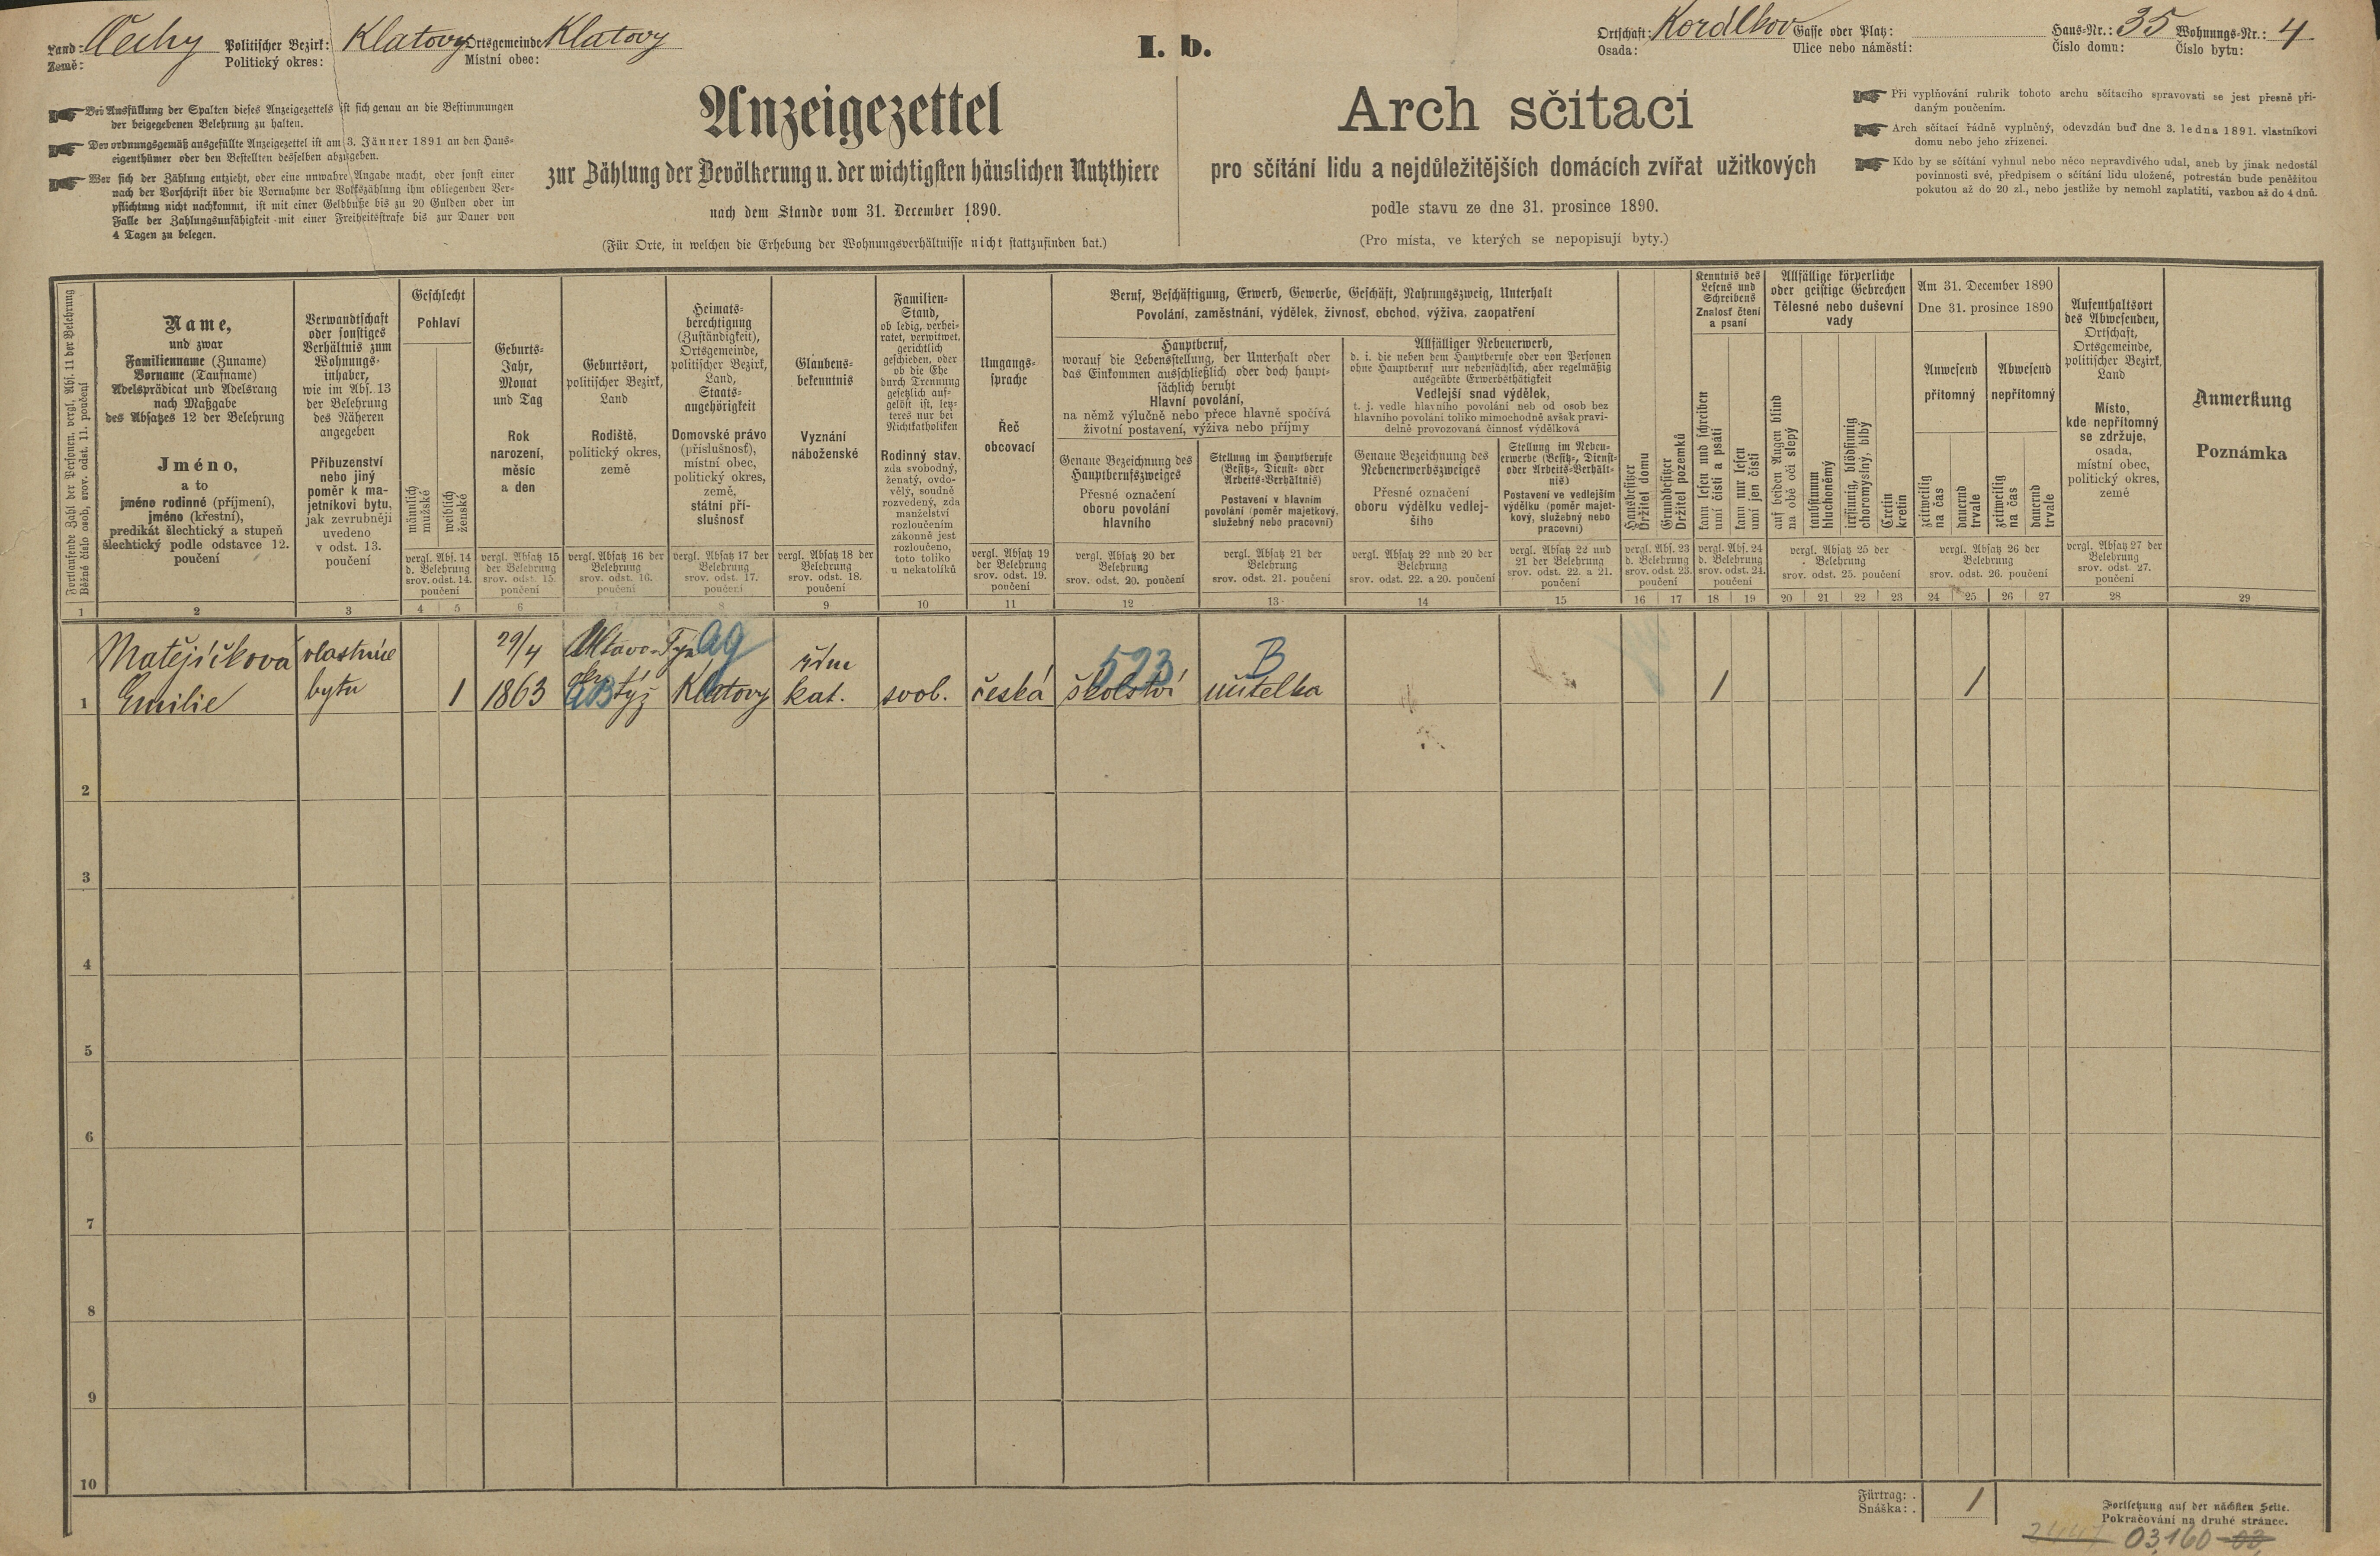 I. b.
Land: Čechy Politischer Bezirk: Klatovy Ortsgemeinde: Klatovy
Země: Politický okres: Místní obec:
Ortschaft: Kordlkov Gasse oder Platz: Haus-Nr.: 35 Wohnungs-Nr.: 4
Osada: Ulice nebo náměstí: Číslo domu: Číslo bytu:
Bei Ausfüllung der Spalten dieses Anzeigezettels ist sich genau an die Bestimmungen
der beigegebenen Belehrung zu halten.
Der ordnungsgemäß ausgefüllte Anzeigezettel ist am 3. Jänner 1891 an den Haus-
eigenthümer oder den Bestellten desselben abzugeben.
Wer sich der Zählung entzieht, oder eine unwahre Angabe macht, oder sonst einer
nach der Vorschrift über die Vornahme der Volkszählung ihm obliegenden Ver-
pflichtung nicht nachkommt, ist mit einer Geldbuße bis zu 20 Gulden oder im
Falle der Zahlungsunfähigkeit mit einer Freiheitsstrafe bis zur Dauer von
4 Tagen zu belegen.
Anzeigezettel
zur Zählung der Bevölkerung u. der wichtigsten häuslichen Nutzthiere
nach dem Stande vom 31. December 1890.
(Für Orte, in welchen die Erhebung der Wohnungsverhältnisse nicht stattzufinden hat.)
Arch sčítací
pro sčítání lidu a nejdůležitějších domácích zvířat užitkových
podle stavu ze dne 31. prosince 1890.
(Pro místa, ve kterých se nepopisují byty.)
Při vyplňování rubrik tohoto archu sčítacího spravovati se jest přesně při-
daným poučením.
Arch sčítací řádně vyplněný, odevzdán buď dne 3. ledna 1891. vlastníkovi
domu nebo jeho zřízenci.
Kdo by se sčítání vyhnul nebo něco nepravdivého udal, aneb by jinak nedostál
povinnosti své, předpisem o sčítání lidu uložené, potrestán bude peněžitou
pokutou až do 20 zl., nebo jestliže by nemohl zaplatiti, vazbou až do 4 dnů.
Fortlaufende Zahl der Personen, vergl. Abs. 11 der Belehrung
Běžné číslo osob, srov. odst. 11. poučení
Name,
und zwar
Familienname (Zuname)
Vorname (Taufname)
Adelsprädicat und Adelsrang
nach Maßgabe
des Absatzes 12 der Belehrung
Jméno,
a to
jméno rodinné (příjmení),
jméno (křestní),
predikát šlechtický a stupeň
šlechtický podle odstavce 12.
poučení
Verwandtschaft
oder sonstiges
Verhältnis zum
Wohnungs-
inhaber,
wie im Abs. 13
der Belehrung
des Näheren
angegeben
Příbuzenství
nebo jiný
poměr k ma-
jetníkovi bytu,
jak zevrubněji
uvedeno
v odst. 13.
poučení
Geschlecht
Pohlaví
männlich
mužské
weiblich
ženské
vergl. Abs. 14
d. Belehrung
srov. odst. 14.
poučení
Geburts-
Jahr,
Monat
und Tag
Rok
narození,
měsíc
a den
vergl. Absatz 15
der Belehrung
srov. odst. 15.
poučení
Geburtsort,
politischer Bezirk,
Land
Rodiště,
politický okres,
země
vergl. Absatz 16 der
Belehrung
srov. odst. 16.
poučení
Heimats-
berechtigung
(Zuständigkeit),
Ortsgemeinde,
politischer Bezirk,
Land,
Staats-
angehörigkeit
Domovské právo
(příslušnosť),
místní obec,
politický okres,
země,
státní pří-
slušnosť
vergl. Absatz 17 der
Belehrung
srov. odst. 17.
poučení
Glaubens-
bekenntnis
Vyznání
náboženské
vergl. Absatz 18 der
Belehrung
srov. odst. 18.
poučení
Familien-
Stand,
ob ledig, verhei-
ratet, verwitwet,
gerichtlich
geschieden, oder
ob die Ehe
durch Trennung
gesetzlich auf-
gelöst ist, letz-
teres nur bei
Nichtkatholiken
Rodinný stav,
zda svobodný,
ženatý, ovdo-
vělý, soudně
rozvedený, zda
manželství
rozloučením
zákonně jest
rozloučeno,
toto toliko
u nekatolíků
Umgangs-
sprache
Řeč
obcovací
vergl. Absatz 19
der Belehrung
srov. odst. 19.
poučení
Beruf, Beschäftigung, Erwerb, Gewerbe, Geschäft, Nahrungszweig, Unterhalt
Povolání, zaměstnání, výdělek, živnosť, obchod, výživa, zaopatření
Hauptberuf,
worauf die Lebensstellung, der Unterhalt oder
das Einkommen ausschließlich oder doch haupt-
sächlich beruht
Hlavní povolání,
na němž výlučně nebo přece hlavně spočívá
životní postavení, výživa nebo příjmy
Genaue Bezeichnung des
Hauptberufszweiges
Přesné označení
oboru povolání
hlavního
vergl. Absatz 20 der
Belehrung
srov. odst. 20. poučení
Stellung im Hauptberufe
(Besitz-, Dienst- oder
Arbeits-Verhältnis)
Postavení v hlavním
povolání (poměr majetkový,
služebný nebo pracovní)
vergl. Absatz 21 der
Belehrung
srov. odst. 21. poučení
Allfälliger Nebenerwerb,
d. i. die neben dem Hauptberufe oder von Personen
ohne Hauptberuf nur nebensächlich, aber regelmäßig
ausgeübte Erwerbsthätigkeit
Vedlejší snad výdělek,
t. j. vedle hlavního povolání neb od osob bez
hlavního povolání toliko mimochodně avšak pravi-
delně provozovaná činnosť výdělková
Genaue Bezeichnung des
Nebenerwerbszweiges
Přesné označení
oboru výdělku vedlej-
šího
vergl. Absatz 22 und 20 der
Belehrung
srov. odst. 22. a 20. poučení
Stellung im Neben-
erwerbe (Besitz-, Dienst-
oder Arbeits-Verhält-
nis)
Postavení ve vedlejším
výdělku (poměr majet-
kový, služebný nebo
pracovní)
vergl. Absatz 22 und
21 der Belehrung
srov. odst. 22. a 21.
poučení
Hausbesitzer
Držitel domu
Grundbesitzer
Držitel pozemků
vergl. Abs. 23
d. Belehrung
srov. odst. 23.
poučení
Kenntnis des
Lesens und
Schreibens
Znalosť čtení
a psaní
kann lesen und schreiben
umí čísti a psáti
kann nur lesen
umí jen čísti
vergl. Abs. 24
d. Belehrung
srov. odst. 24.
poučení
Allfällige körperliche
oder geistige Gebrechen
Tělesné nebo duševní
vady
auf beiden Augen blind
na obě oči slepý
taubstumm
hluchoněmý
irrsinnig, blödsinnig
choromyslný, blbý
Cretin
kretin
vergl. Absatz 25 der
Belehrung
srov. odst. 25. poučení
Am 31. December 1890
Dne 31. prosince 1890
Anwesend
přítomný
Abwesend
nepřítomný
zeitweilig
na čas
dauernd
trvale
zeitweilig
na čas
dauernd
trvale
vergl. Absatz 26 der
Belehrung
srov. odst. 26. poučení
Aufenthaltsort
des Abwesenden,
Ortschaft,
Ortsgemeinde,
politischer Bezirk,
Land
Místo,
kde nepřítomný
se zdržuje,
osada,
místní obec,
politický okres,
země
vergl. Absatz 27 der
Belehrung
srov. odst. 27.
poučení
Anmerkung
Poznámka
1 2 3 4 5 6 7 8 9 10 11 12 13 14 15 16 17 18 19 20 21 22 23 24 25 26 27 28 29
Matějíčková vlastnice 29/4 Vltavo-Týn ag řím 523 B
1 Emilie bytu 1 1863 okr. týž Klatovy kat. svob. česká školství učitelka 1 1
2
3
4
5
6
7
8
9
10
Fürtrag: 1
Snáška:
Fortsetzung auf der nächsten Seite.
Pokračování na druhé stránce.
03,160